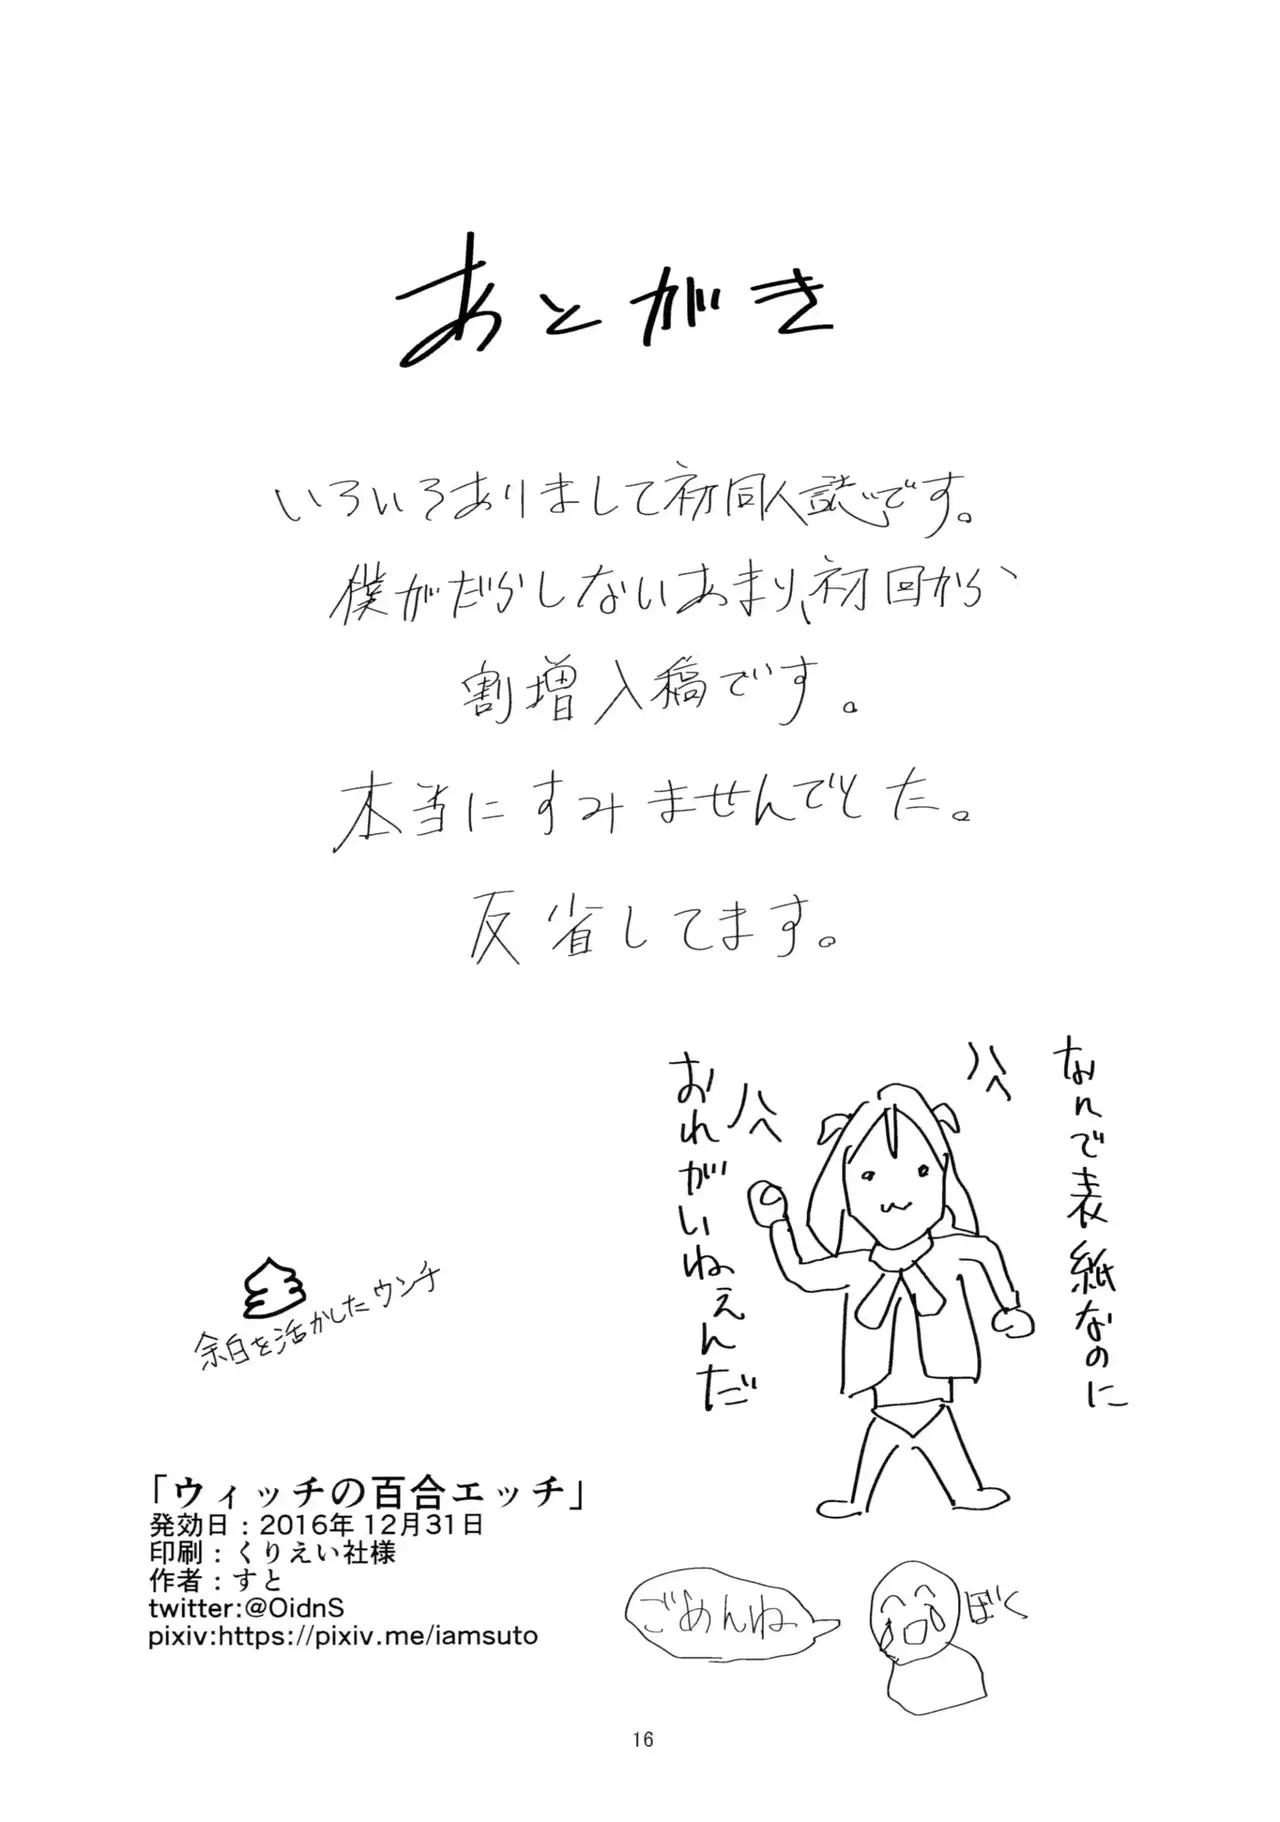 あとがき
いろいろありまして初同人誌です。
僕がだらしないあまり、初回から、
割増入稿です。
本当にすみませんでした。
反省してます。
なんで表紙なのに
おれがいねぇんだ
余白を活かしたウンチ
「ウィッチの百合エッチ」
発効日：2016年 12月31日
印刷：くりえい社様
作者：すと
twitter:@OidnS
pixiv:https://pixiv.me/iamsuto
ごめんね
ぼく
16